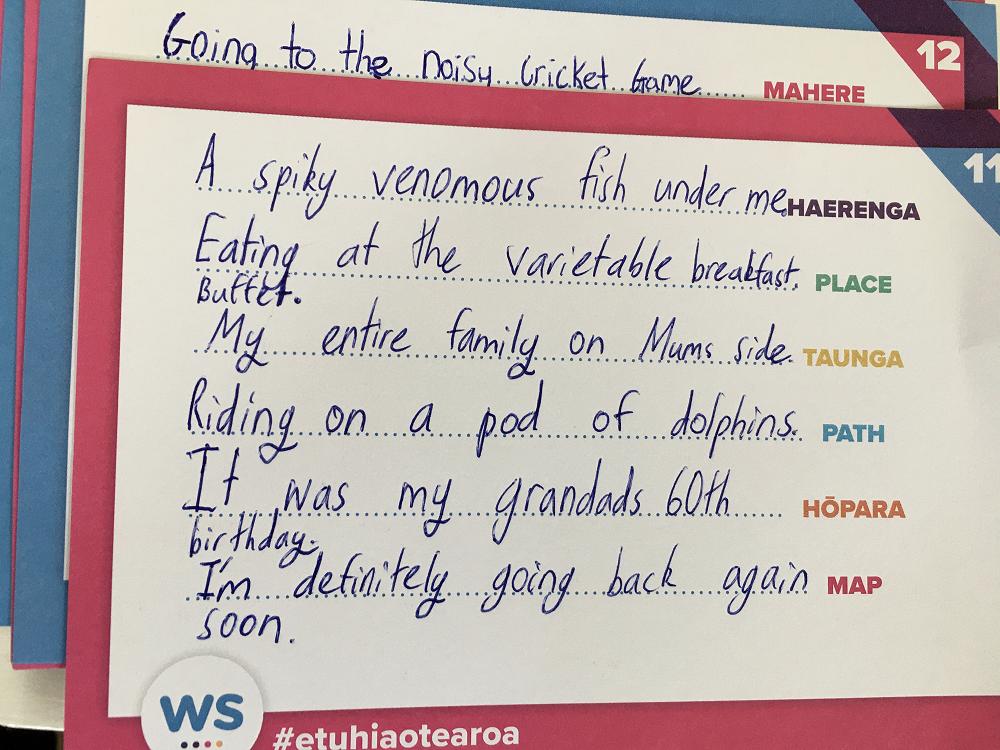 Going to the noisy Cricket Game MAHERE
12
A spiky venomous fish under me. HAERENGA
11
Eating at the varietable breakfast. PLACE
Buffet.
My entire family on Mums side. TAUNGA
Riding on a pod of dolphins. PATH
It was my grandads 60th HŌPARA
birthday.
I'm definitely going back again MAP
soon.
WS
#etuhiaotearoa